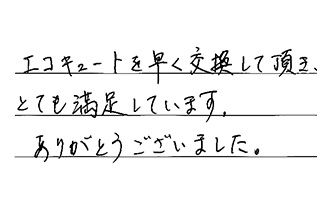 エコキュートを早く交換して頂き、
とても満足しています。
ありがとうございました。